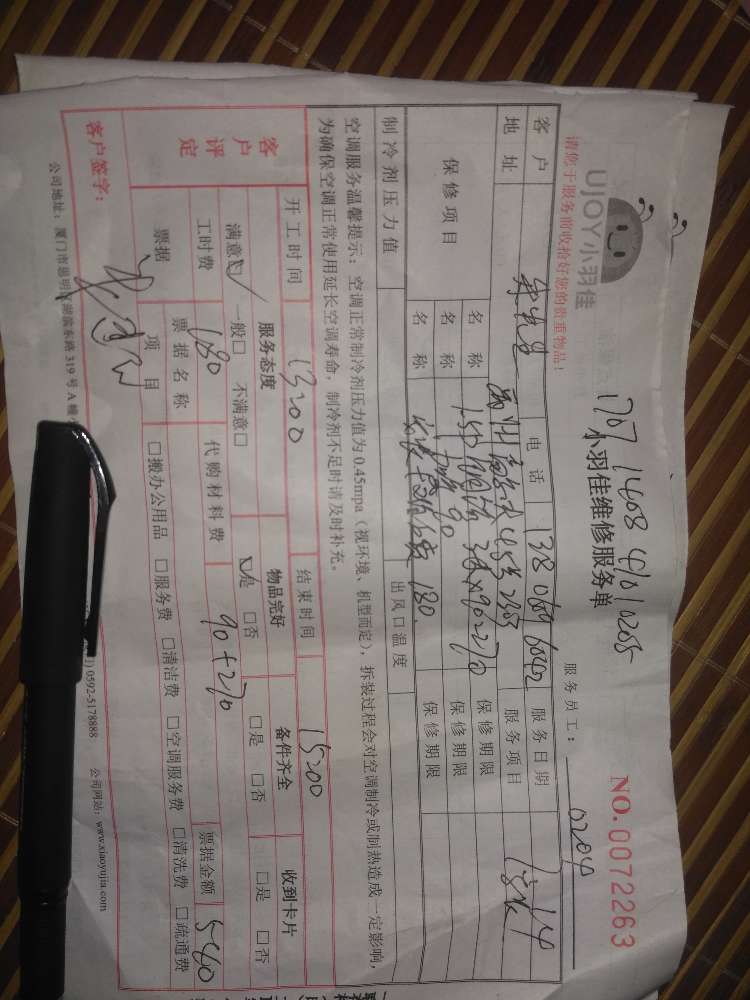 UJOY小羽佳
1707140841010205
小羽佳维修服务单
NO.0072263
请您于服务前收拾好您的贵重物品！
服务员工：
0204
客户
电话
服务日期
地址
服务项目
保修项目
名称
3 x90=270
保修期限
名称
90
保修期限
名称
180
保修期限
制冷剂压力值
出风口温度
空调服务温馨提示：空调正常制冷剂压力值为0.45mpa（视环境、机型而定），拆装过程会对空调制冷或制热造成一定影响，
为确保空调正常使用延长空调寿命，制冷剂不足时请及时补充。
开工时间 13:00 结束时间 15:00
客户评定
服务态度 物品完好 备件齐全 收到卡片
满意☑ 一般□ 不满意□ ☑是 □否 □是 □否 □是 □否
工时费 180 代购材料费 90+270 票据金额 540
票据 票据名称
项目 □搬办公用品 □服务费 □清洁费 □空调服务费 □清洗费 □疏通费
客户签字：
公司地址：厦门市思明区湖滨东路319号A幢
0592-5178888 公司网站：www.xiaoyujia.com